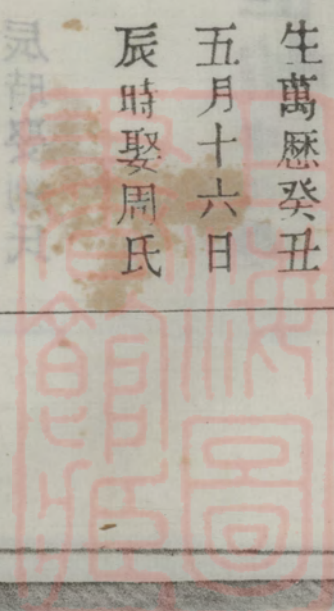 生萬歷癸丑
五月十六日
辰時娶周氏